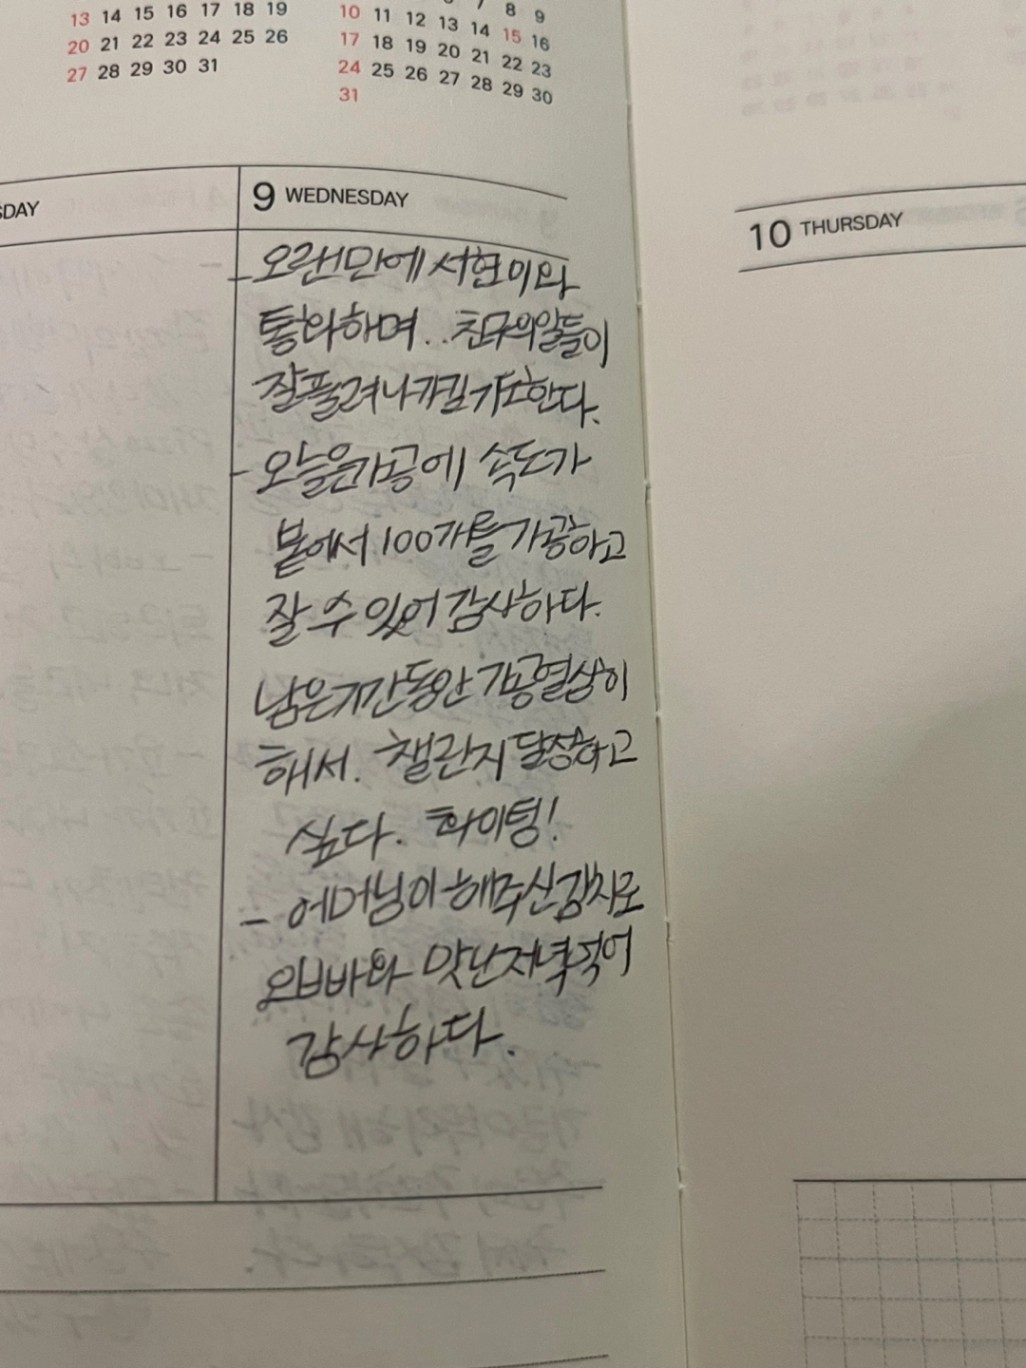 13 14 15 16 17 18 19
20 21 22 23 24 25 26
27 28 29 30 31
7 8 9
10 11 12 13 14 15 16
17 18 19 20 21 22 23
24 25 26 27 28 29 30
31
SDAY
9 WEDNESDAY
- 오랜만에 서현미와
통화하며.. 친구의 일들이
잘 풀려나가길 기도한다.
- 오늘은 가공에 속도가
붙어서 100개를 가공하고
잘 수 있어 감사하다.
남은 기간동안 가공 열심히
해서. 챌린지 달성하고
싶다. 화이팅!
- 어머님이 해주신 김치로
오빠와 맛난 저녁 먹어
감사하다.
10 THURSDAY